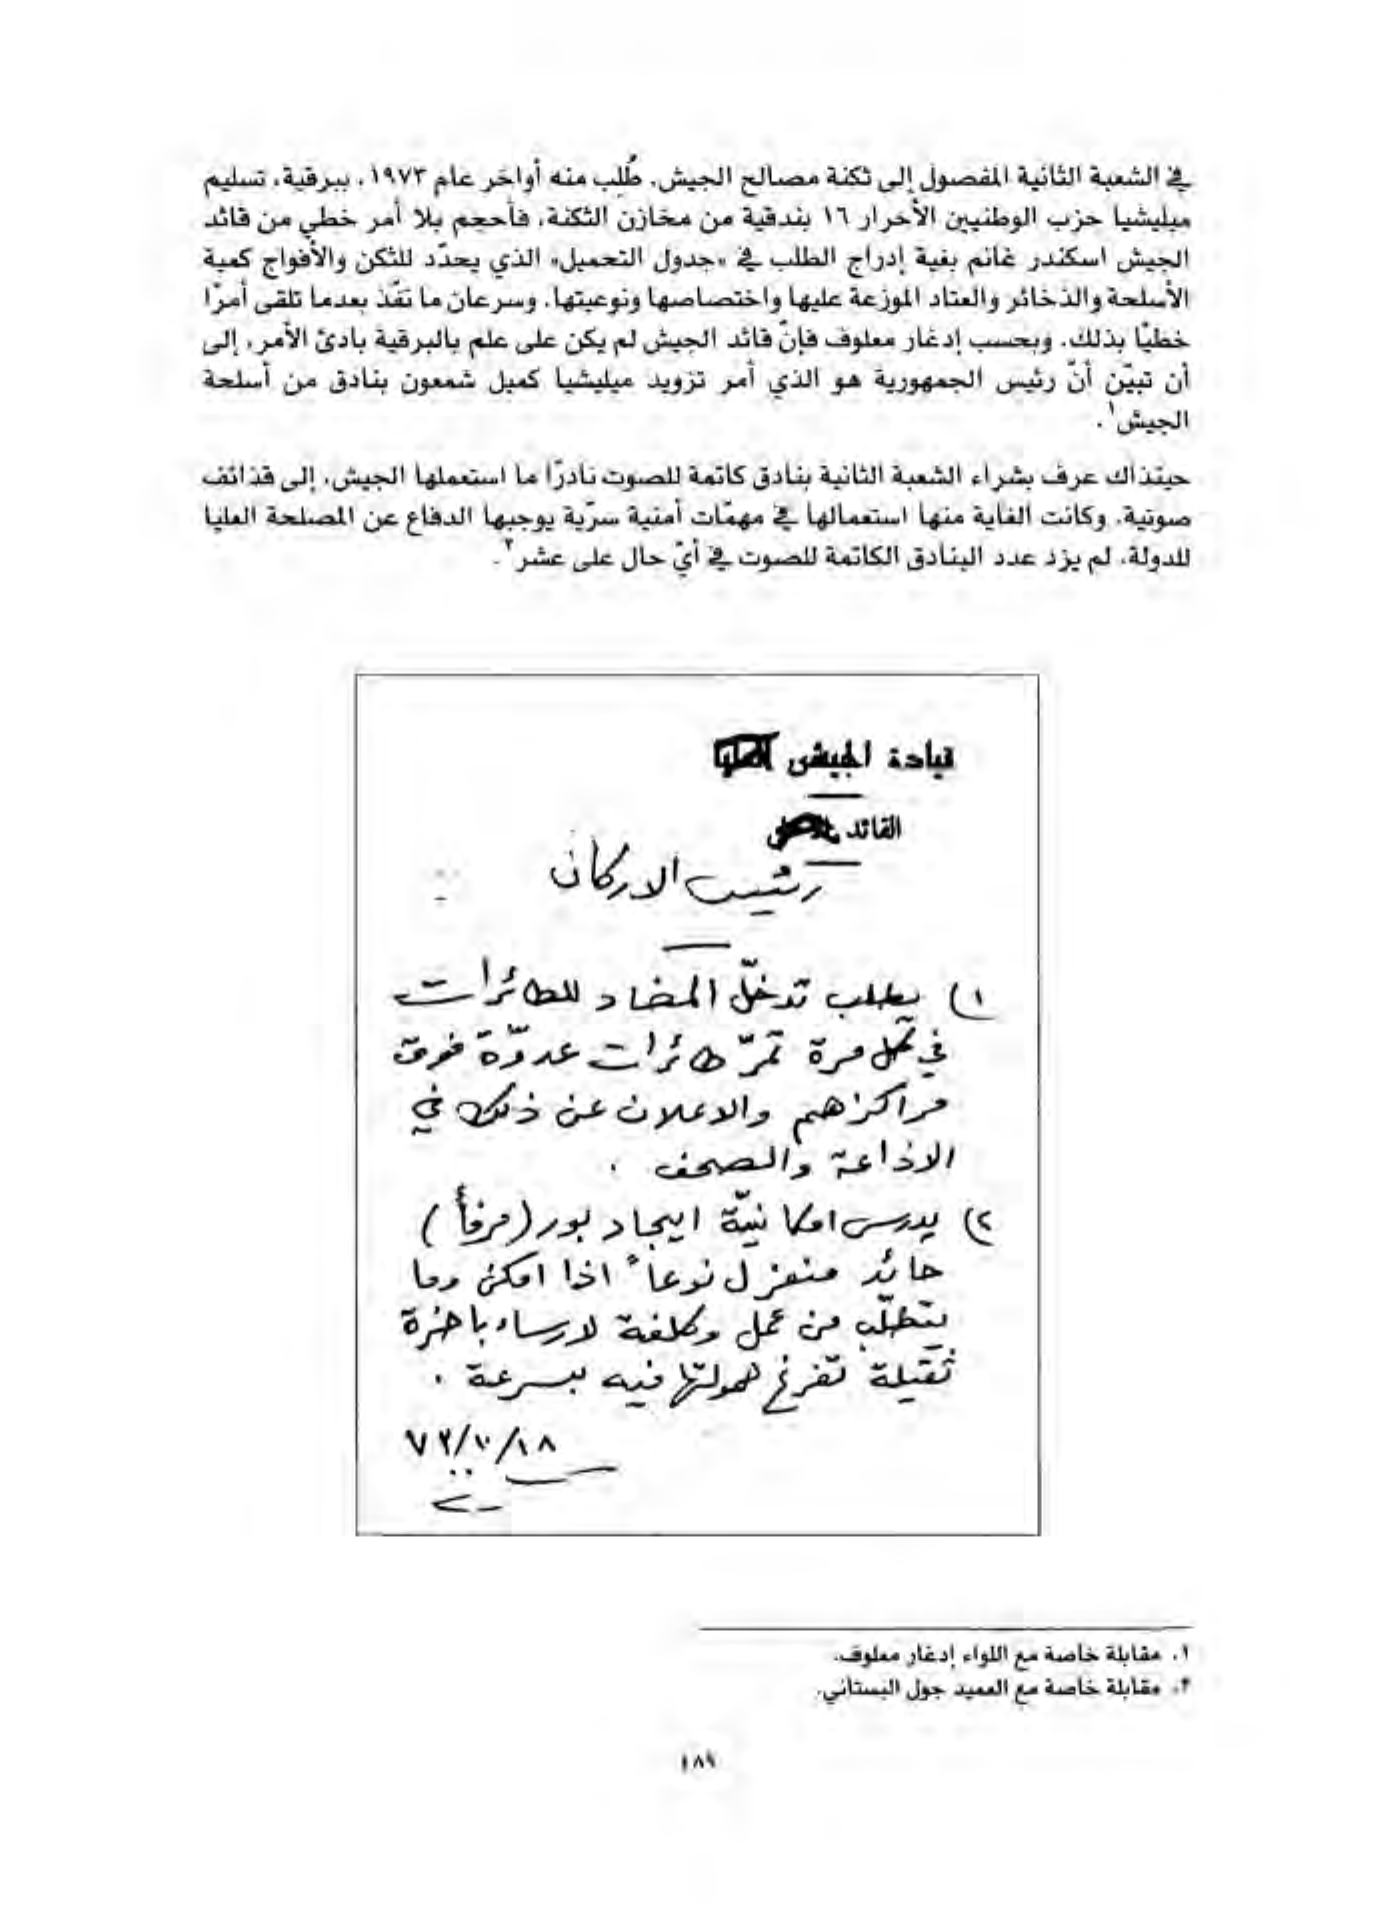 في الشعبة الثانية المفصول إلى ثكنة مصالح الجيش. طُلِب منه أواخر عام ١٩٧٣، ببرقية، تسليم
ميليشيا حزب الوطنيين الأحرار ١٦ بندقية من مخازن الثكنة، فأحجم بلا أمر خطي من قائد
الجيش اسكندر غانم بغية إدراج الطلب في «جدول التحميل» الذي يحدّد للثكن والأفواج كمية
الأسلحة والذخائر والعتاد الموزعة عليها واختصاصها ونوعيتها. وسرعان ما نفّذ بعدما تلقى أمرًا
خطيًا بذلك. وبحسب إدغار معلوف فإنّ قائد الجيش لم يكن على علم بالبرقية بادئ الأمر، إلى
أن تبيّن أنّ رئيس الجمهورية هو الذي أمر تزويد ميليشيا كميل شمعون بنادق من أسلحة
الجيش١.
حينذاك عرف بشراء الشعبة الثانية بنادق كاتمة للصوت نادرًا ما استعملها الجيش، إلى قذائف
صوتية. وكانت الغاية منها استعمالها في مهمّات أمنية سرّية يوجبها الدفاع عن المصلحة العليا
للدولة. لم يزد عدد البنادق الكاتمة للصوت في أيّ حال على عشر٢.
قيادة الجيش
القائد
رئيس الاركان
١) يطلب تدخّل المضاد للطائرات
في كل مرة تمرّ طائرات عدوّة فوق
مراكزهم والاعلان عن ذلك في
الاذاعة والصحف .
٢) يدرس امكانيّة ايجاد بور (مرفأ)
حائد منعزل نوعاً اذا امكن وما
يتطلّب من عمل وكلفة لارساء باخرة
ثقيلة تفرغ حمولتها فيه بسرعة .
٧٣/١٠/١٨
١. مقابلة خاصة مع اللواء إدغار معلوف.
٢. مقابلة خاصة مع العميد جول البستاني.
١٨٩